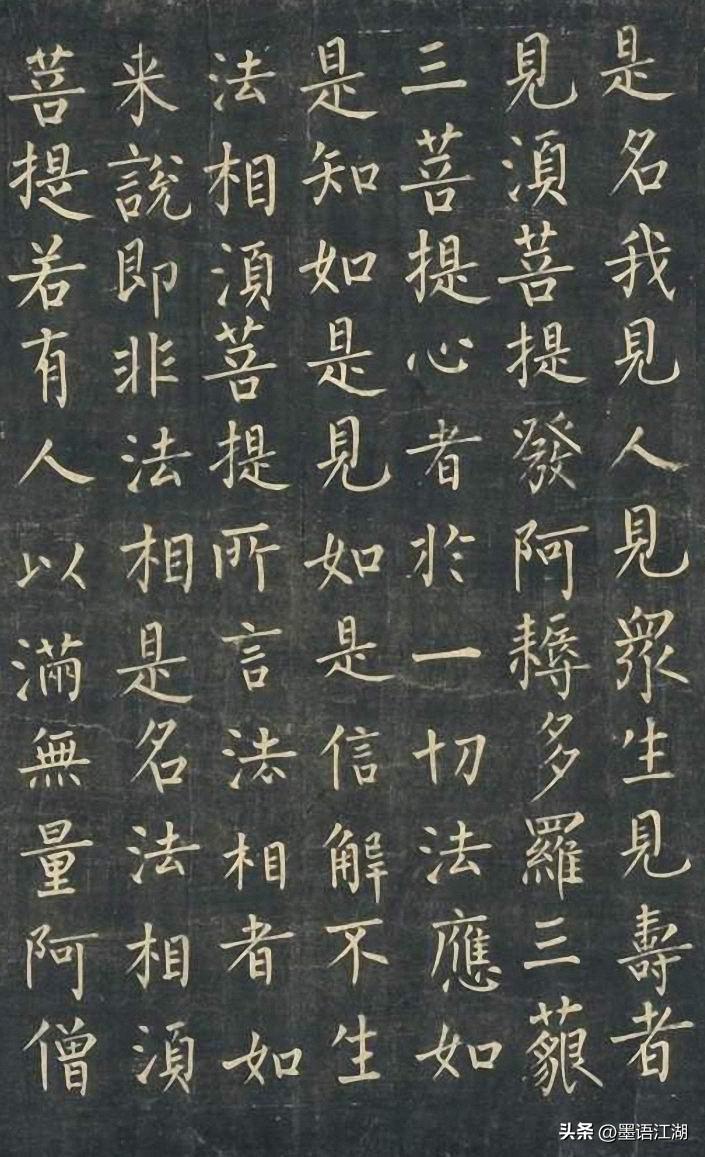 是名我見人見眾生見壽者
見湏菩提發阿耨多羅三藐
三菩提心者於一切法應如
是知如是見如是信解不生
法相湏菩提所言法相者如
来說即非法相是名法相湏
菩提若有人以滿無量阿僧
头条 @墨语江湖